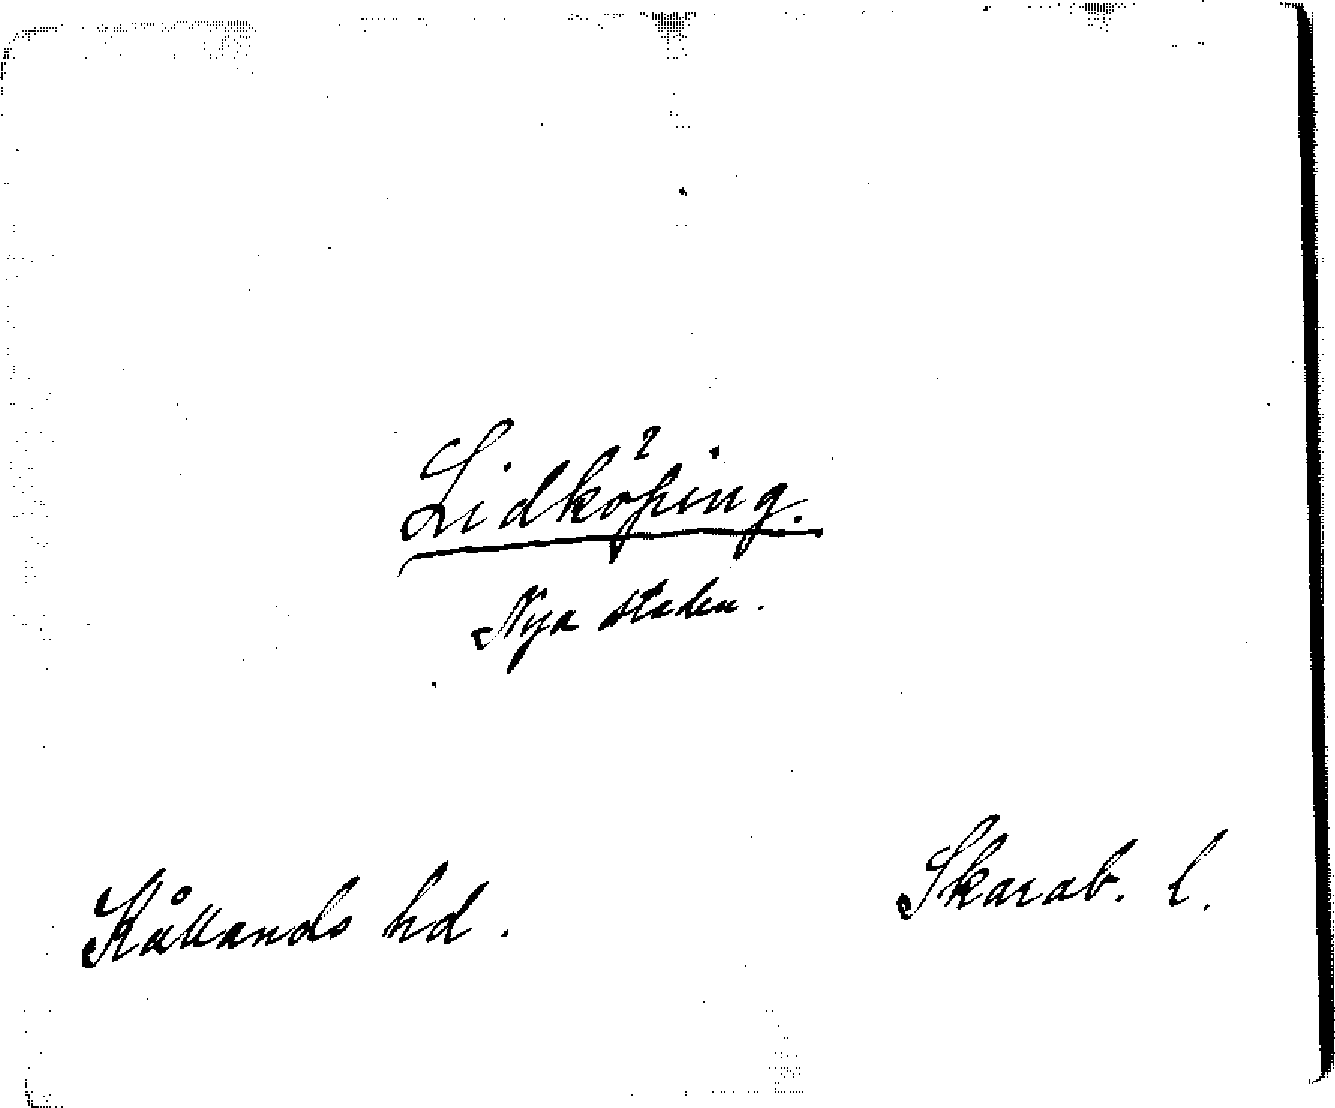 Lidköping.
Nya staden.
Kållands hd.
Skarab. l.